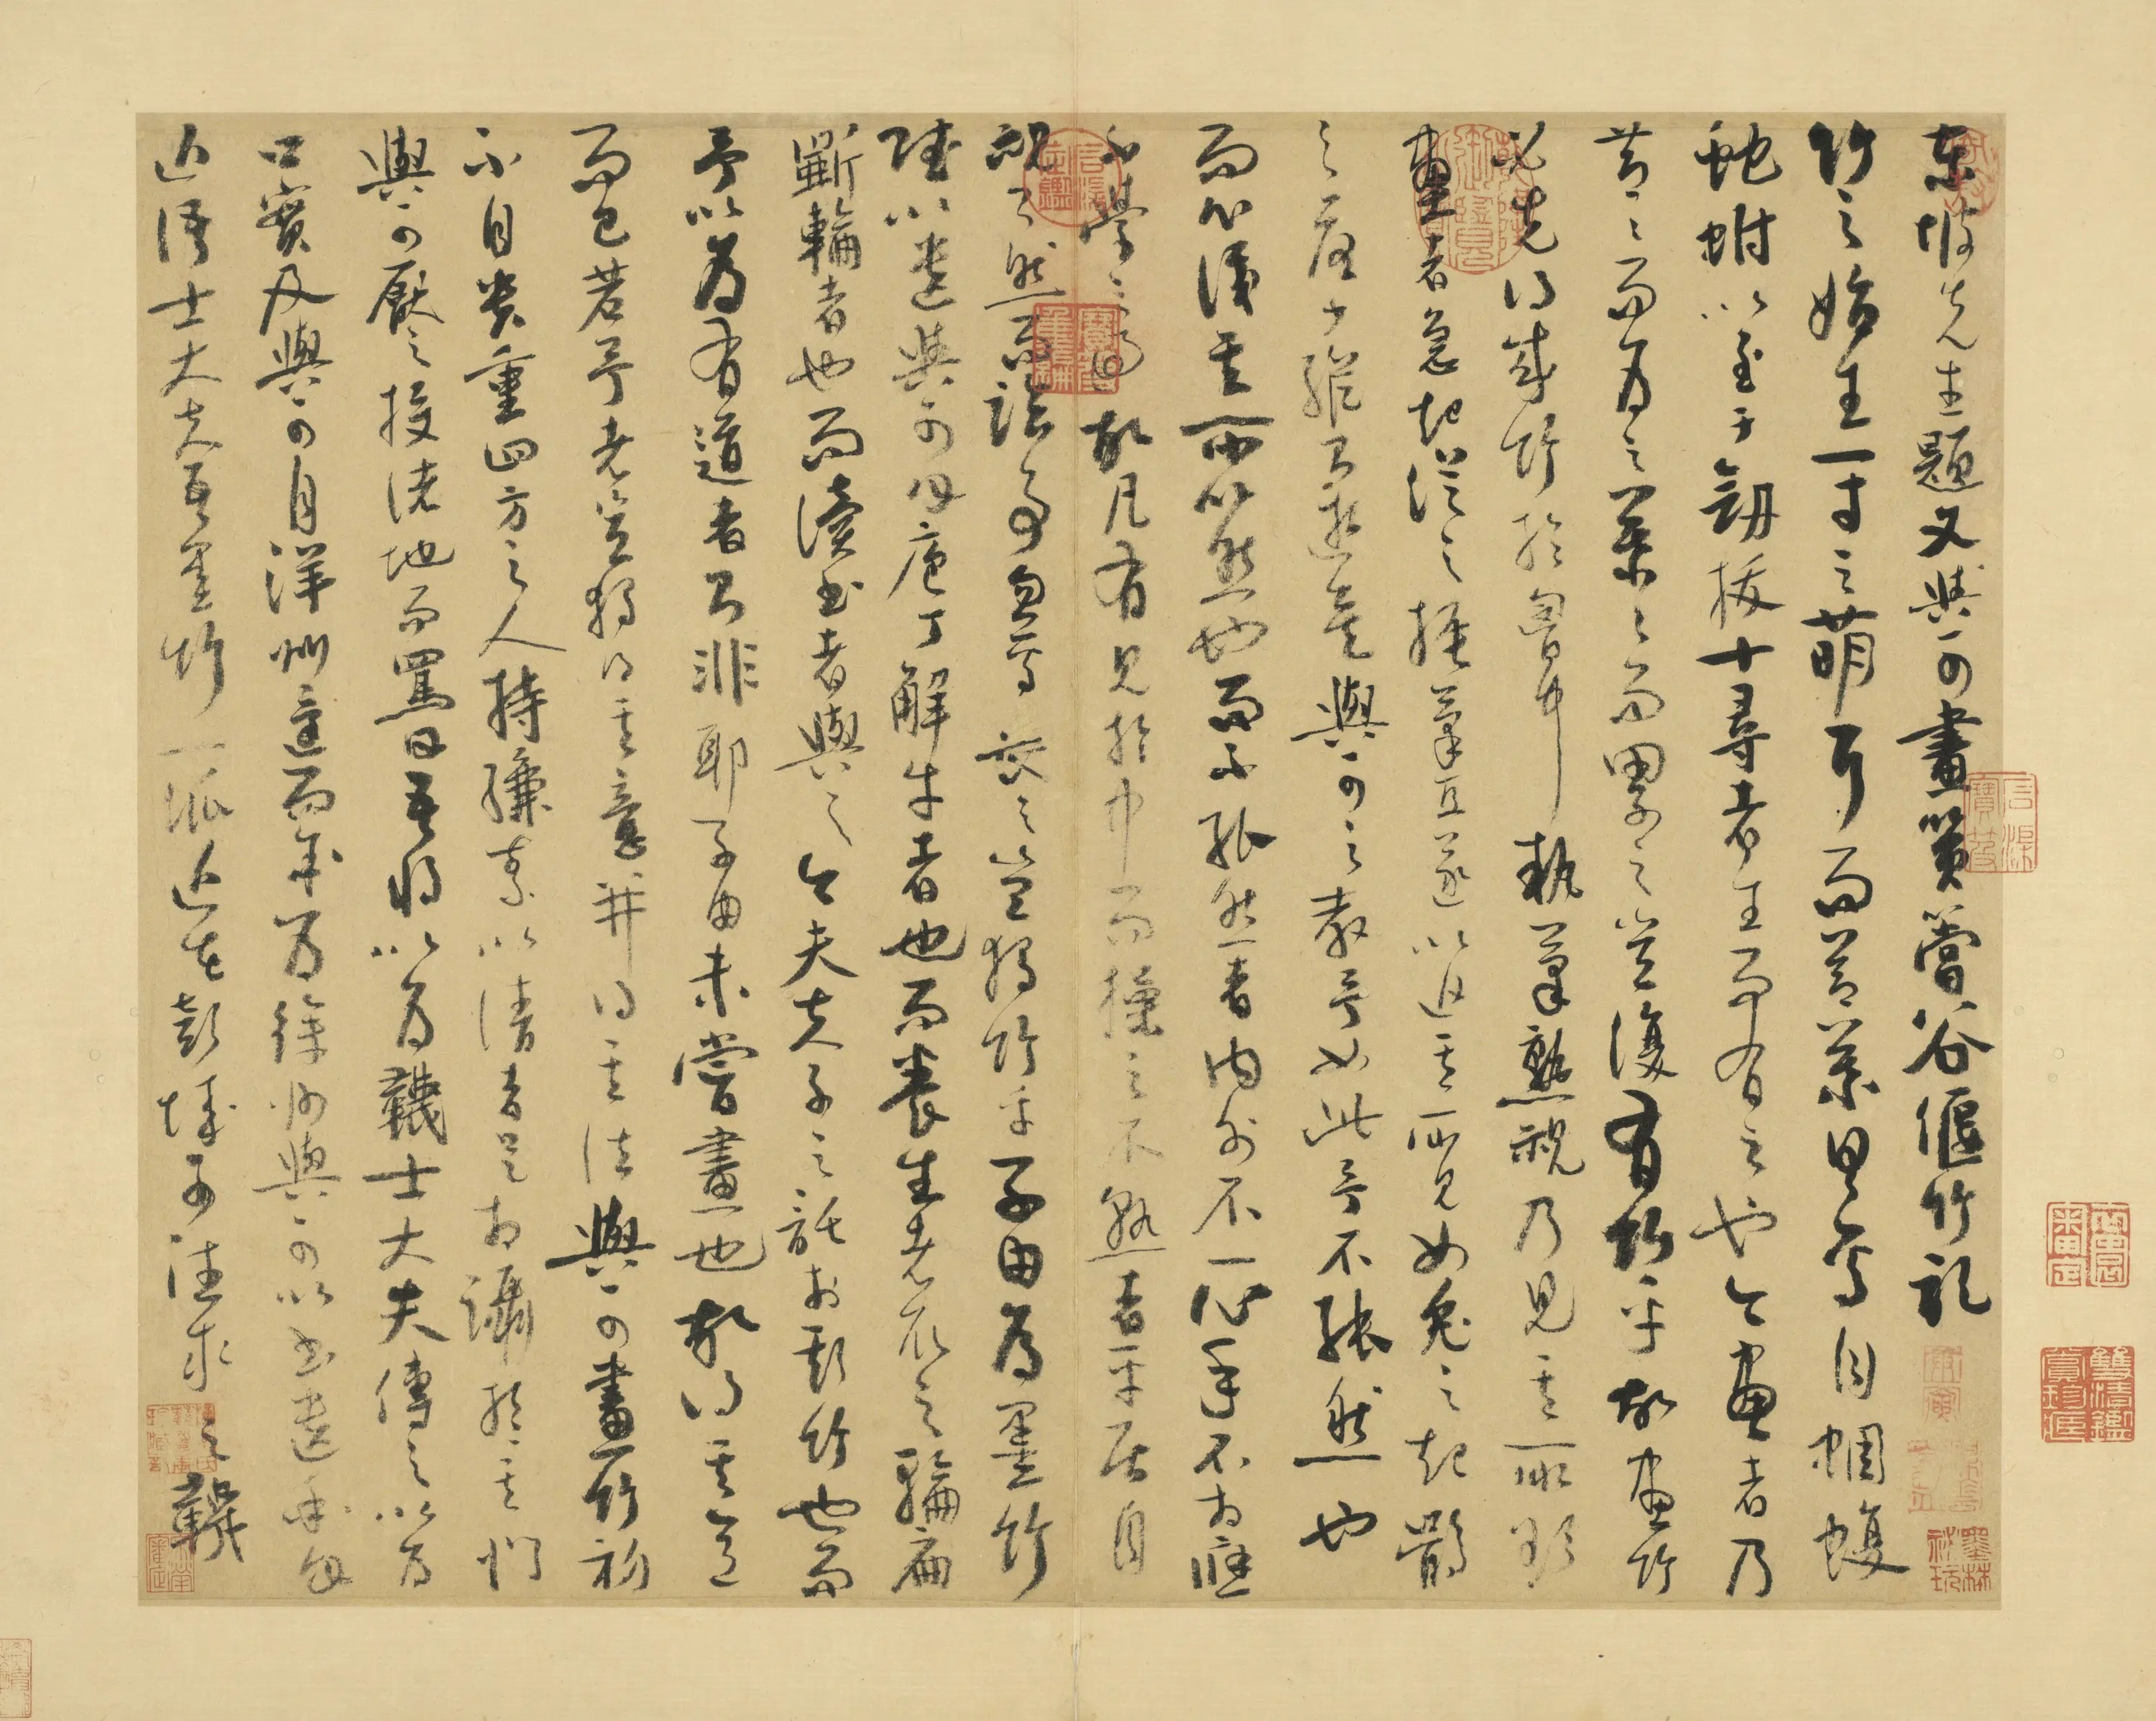 東坡先生題文與可畫篔簹谷偃竹記
竹之始生一寸之萌耳而節葉具焉自蜩蝮
蛇蚹以至于劍拔十尋者生而有之也今畫者乃
節〻而為之葉〻而累之豈復有竹乎故畫竹
必先得成竹於胷中執筆熟視乃見其所欲
畫者急起從之振筆直遂以追其所見如兔之起鶻
之落少縱則逝矣與可之教予如此予不能然也
而心識其所以然也而不能然者內外不一心手不相應
不學之過故凡有見於中而操之不熟者平居自
視了然而臨事忽焉喪之豈獨竹乎子由為墨竹
賦以遺與可曰庖丁解牛者也而養生者取之輪扁
斲輪者也而讀書者與之今夫夫子之託於斯竹也而
予以為有道者則非耶子由未嘗畫也故得其意
而已若予者豈獨得其意并得其法與可畫竹初
不自貴重四方之人持縑素以請者足相躡於其門
與可厭之投諸地而罵曰吾將以為韈士大夫傳之以為
口實及與可自洋州還而余為徐州與可以書遺余曰
近語士大夫吾墨竹一派近在彭城可往求之韈
墨林秘玩